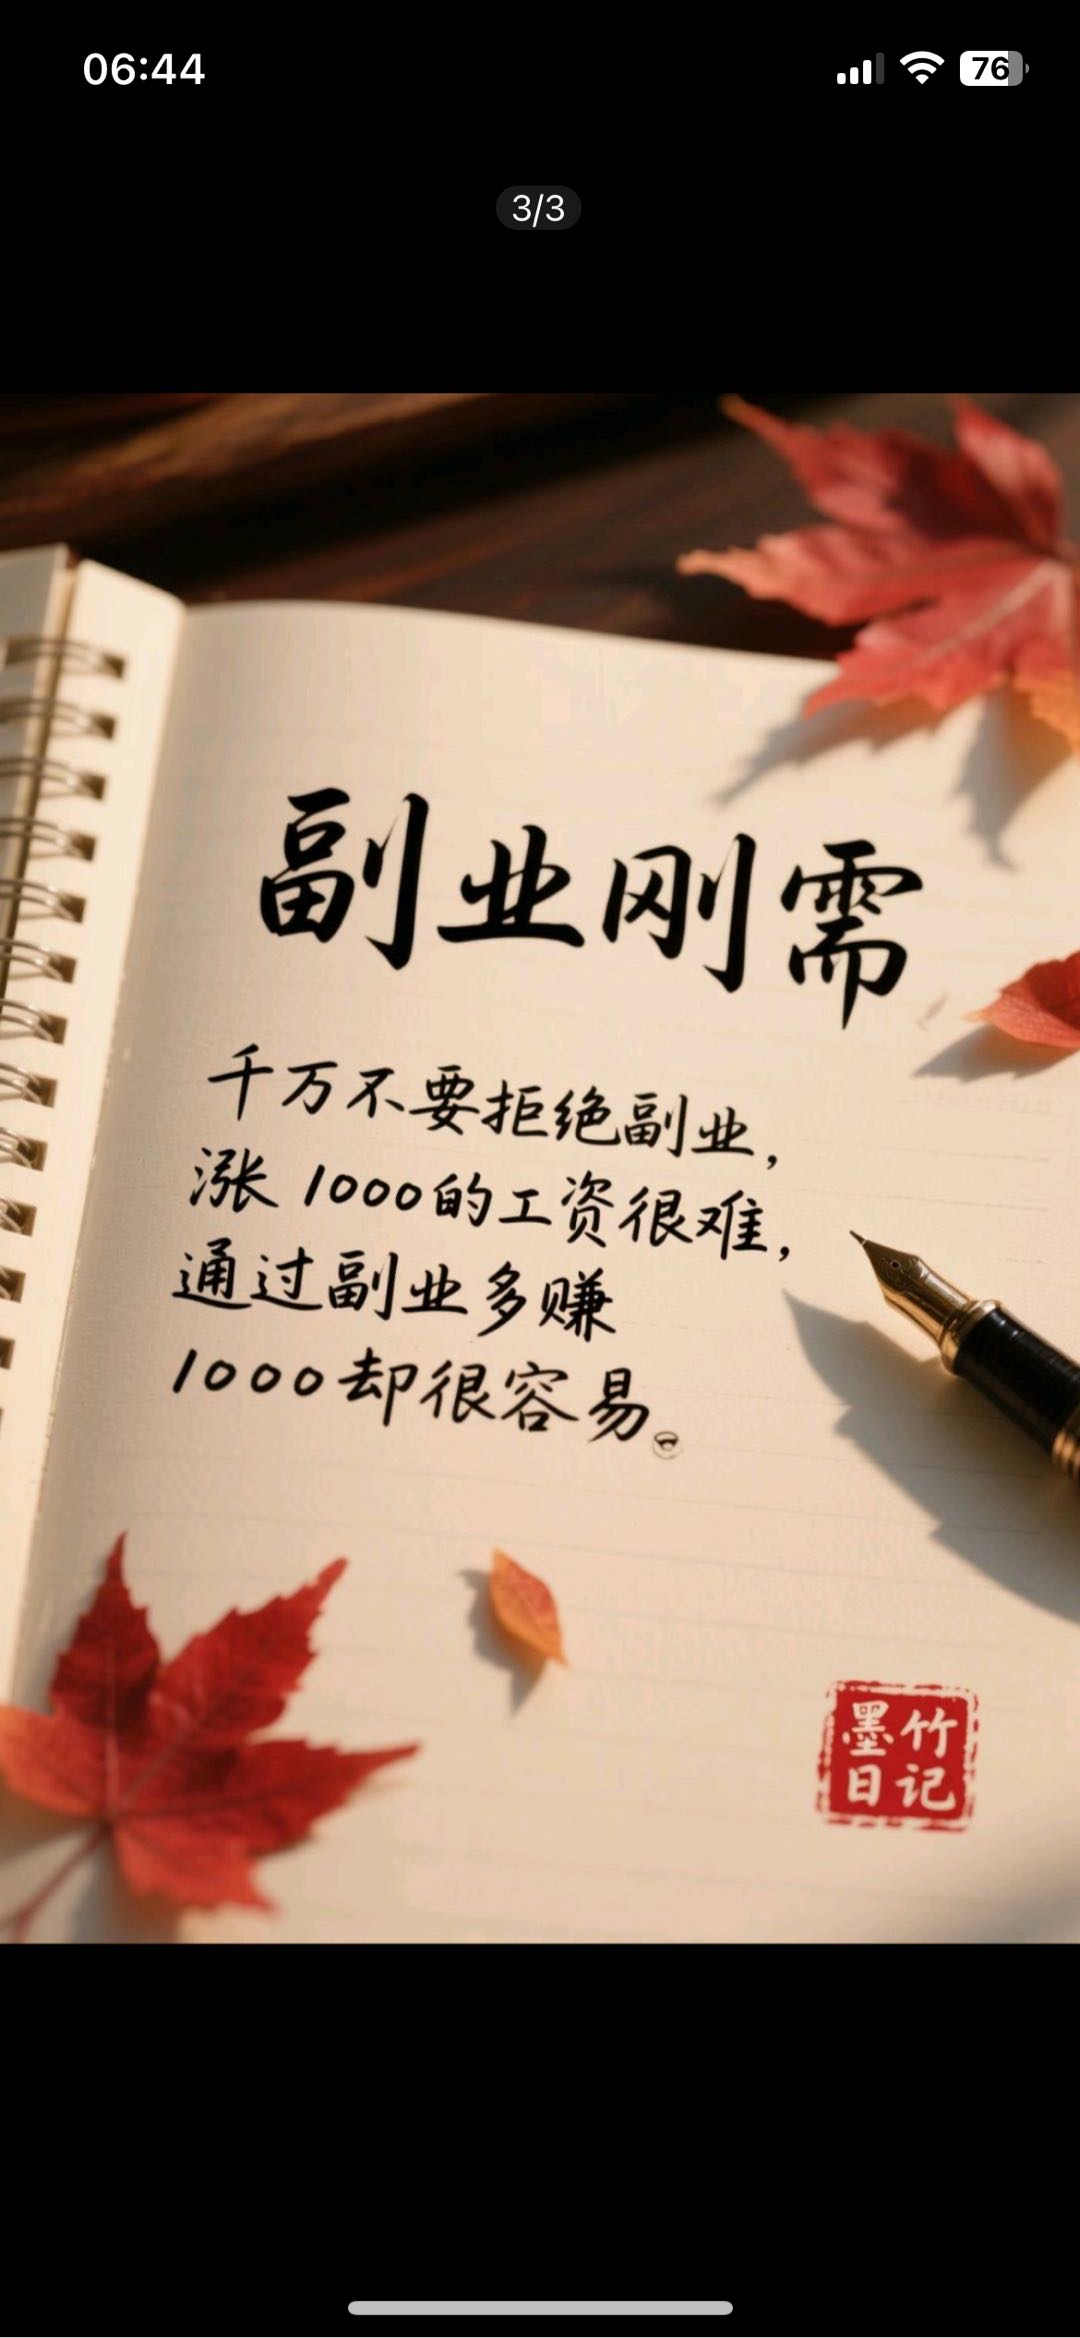 06:44
76
3/3
副业刚需
千万不要拒绝副业，
涨1000的工资很难，
通过副业多赚
1000却很容易。
墨竹
日记